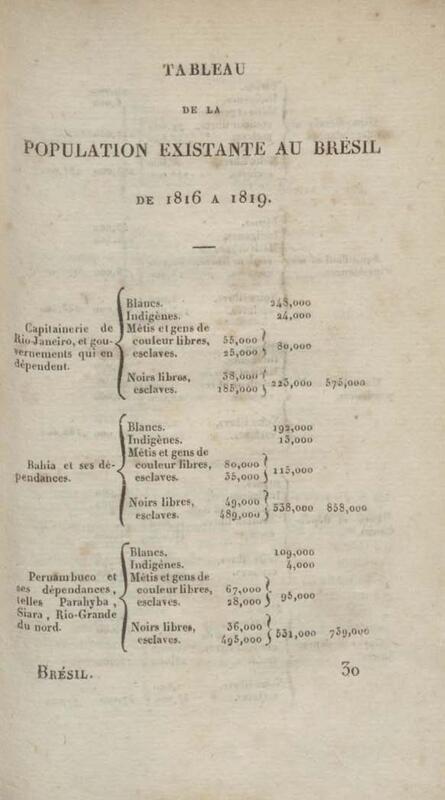 TABLEAU
DE LA
POPULATION EXISTANTE AU BRÉSIL
DE 1816 A 1819.
Capitainerie de
Rio-Janeiro, et gou-
vernements qui en
dépendent.
Blancs. 248,000
Indigènes. 24,000
Métis et gens de
couleur libres, 55,000
esclaves. 25,000 80,000
Noirs libres, 38,000
esclaves. 185,000 223,000 575,000
Bahia et ses dé-
pendances.
Blancs. 192,000
Indigènes. 13,000
Métis et gens de
couleur libres, 80,000
esclaves. 35,000 115,000
Noirs libres, 49,000
esclaves. 489,000 538,000 858,000
Peruambuco et
ses dépendances,
telles Parahyba,
Siara, Rio-Grande
du nord.
Blancs. 109,000
Indigènes. 4,000
Métis et gens de
couleur libres, 67,000
esclaves. 28,000 95,000
Noirs libres, 36,000
esclaves. 495,000 531,000 739,000
BRÉSIL. 30